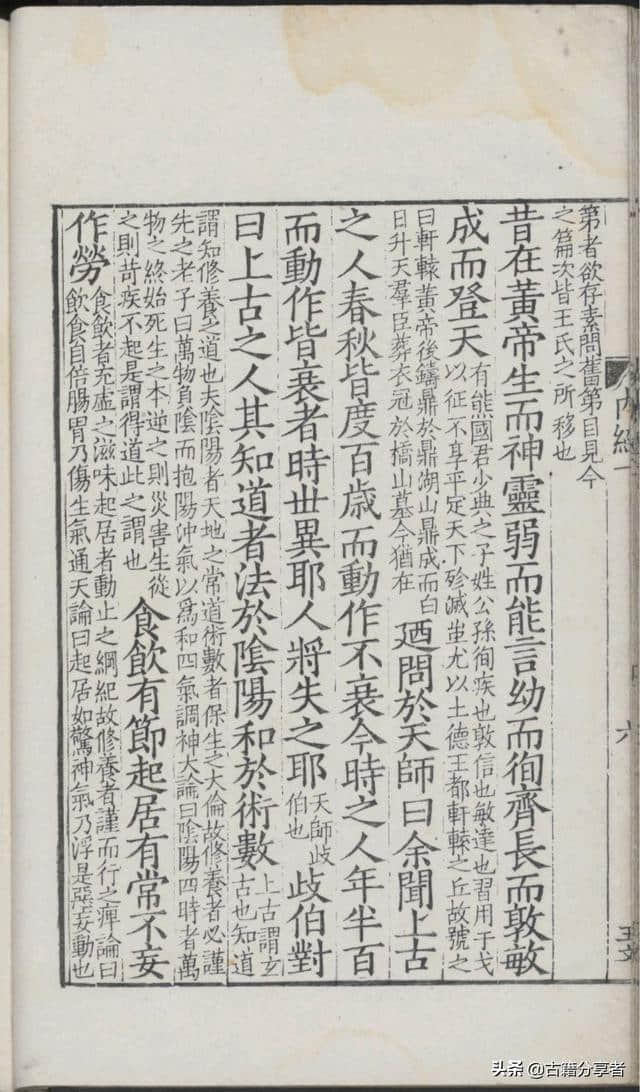 内經一
六
第者欲存素問舊第目見今
之篇次皆王氏之所移也
昔在黃帝生而神靈弱而能言幼而徇齊長而敦敏
成而登天
有熊國君少典之子姓公孫徇疾也敦信也敏達也習用于戈
以征不享平定天下殄滅蚩尤以土德王都軒轅之丘故號之
曰軒轅黃帝後鑄鼎於鼎湖山鼎成而白
日升天羣臣葬衣冠於橋山墓今猶在
廼問於天師曰余聞上古
之人春秋皆度百歲而動作不衰今時之人年半百
而動作皆衰者時世異耶人將失之耶
天師歧
伯也
歧伯對
曰上古之人其知道者法於陰陽和於術數
上古謂玄
古也知道
謂知修養之道也夫陰陽者天地之常道術數者保生之大倫故修養者必謹
先之老子曰萬物負陰而抱陽沖氣以爲和四氣調神大論曰陰陽四時者萬
物之終始死生之本逆之則災害生從
之則苛疾不起是謂得道此之謂也
食飲有節起居有常不妄
作勞
食飲者充虛之滋味起居者動止之綱紀故修養者謹而行之痺論曰
飲食自倍腸胃乃傷生氣通天論曰起居如驚神氣乃浮是惡妄動也
头条 @古籍分享者